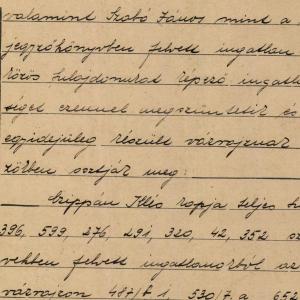 valamint Szabó János mint a
jegyzőkönyvben felvett ingatlan
közös tulajdonukat képező ingatla
séget ezennel megszüntetik és
egyidejüleg készült vázrajznak
zölben osztják meg:
Czippán Illés kapja teljes
396, 599, 276, 291, 320, 42, 352 sz
vekben felvett ingatlanokból az
vázrajzon 487/b 1, 530/7 a 651